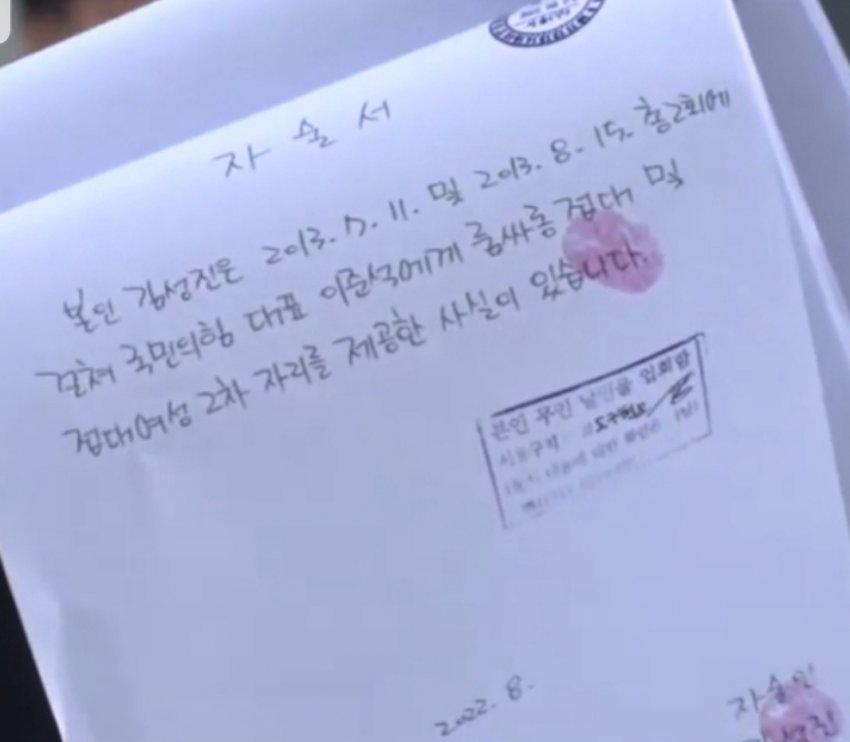 자 술 서
본인 김성진은 2013. 7. 11. 및 2013. 8. 15. 총2회에
걸쳐 국민의힘 대표 이준석에게 룸싸롱 접대 및
접대여성 2차 자리를 제공한 사실이 있습니다.
본인 무인 날인을 입회함
서울구치소
2022. 8.
자술인
성진